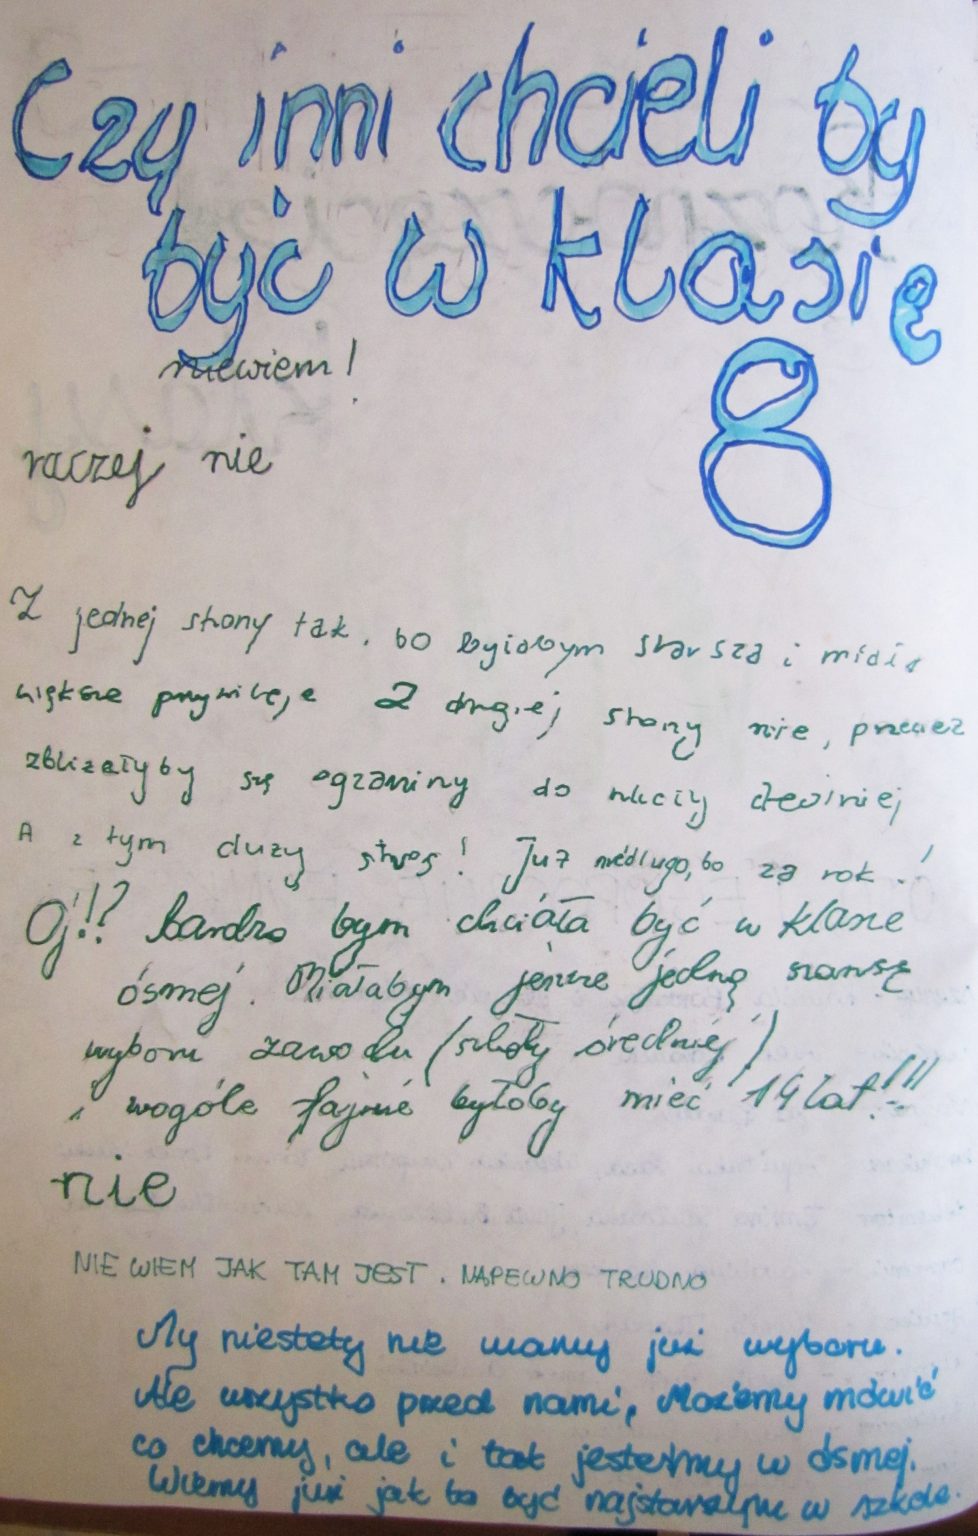 Czy inni chcieli by
być w klasię
8
niewiem!
raczej nie
Z jednej strony tak, bo byłabym starsza i miała
większe przywileje Z drugiej strony nie, przecież
zbliżałyby się egzaminy do szkoły
A z tym duży stres! Już niedługo, bo za rok!
Oj!!? bardzo bym chciała być w klasie
ósmej. Miałabym jeszcze jedną szansę
wyboru zawodu (szkoły średniej)
i wogóle fajnie byłoby mieć 14 lat!!!
nie
NIE WIEM JAK TAM JEST. NAPEWNO TRUDNO
My niestety nie mamy już wyboru.
Ale wszystko przed nami, Możemy mówić
co chcemy, ale i tak jesteśmy w ósmej.
Wiemy już jak to być najstarszym w szkole.